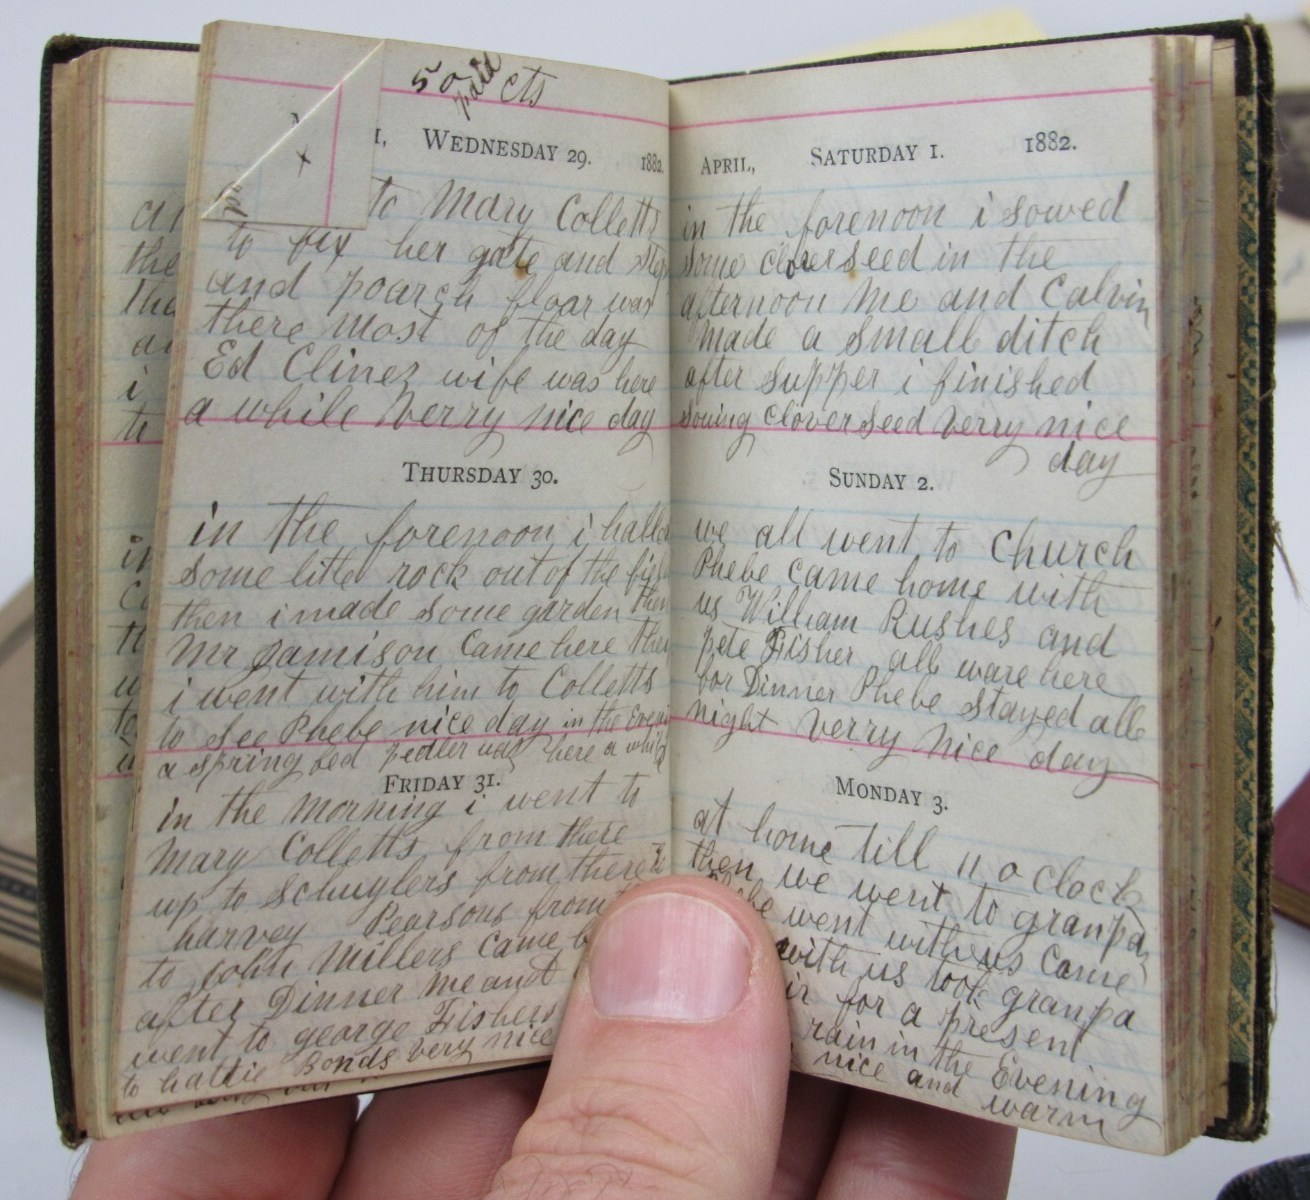 50 cts
paid
WEDNESDAY 29. 1882.
to Mary Colletts
to fix her gate and step
and poarch floar was
there most of the day
Ed Clinez wife was here
a while verry nice day
THURSDAY 30.
in the forenoon i halled
some litle rock out of the
then i made some garden then
Mr Jamison came here then
i went with him to Colletts
to see Phebe nice day in the
a spring bed pedler was here a while
FRIDAY 31.
in the morning i went to
Mary Colletts from there
up to Schuylers from there
harvey Pearsons from
to John Millers came
after Dinner me and
went to george Fishers
to hattie Bonds very nice
APRIL, SATURDAY 1. 1882.
in the forenoon i sowed
some clover seed in the
afternoon me and Calvin
made a small ditch
after supper i finished
sowing clover seed verry nice
day
SUNDAY 2.
we all went to church
Phebe came home with
us William Rushes and
pete Fisher all ware here
for Dinner Phebe stayed all
night verry nice day
MONDAY 3.
at home till 11 o clock
then we went to granpa
went with us came
with us took granpa
for a present
rain in the Evening
nice and warm